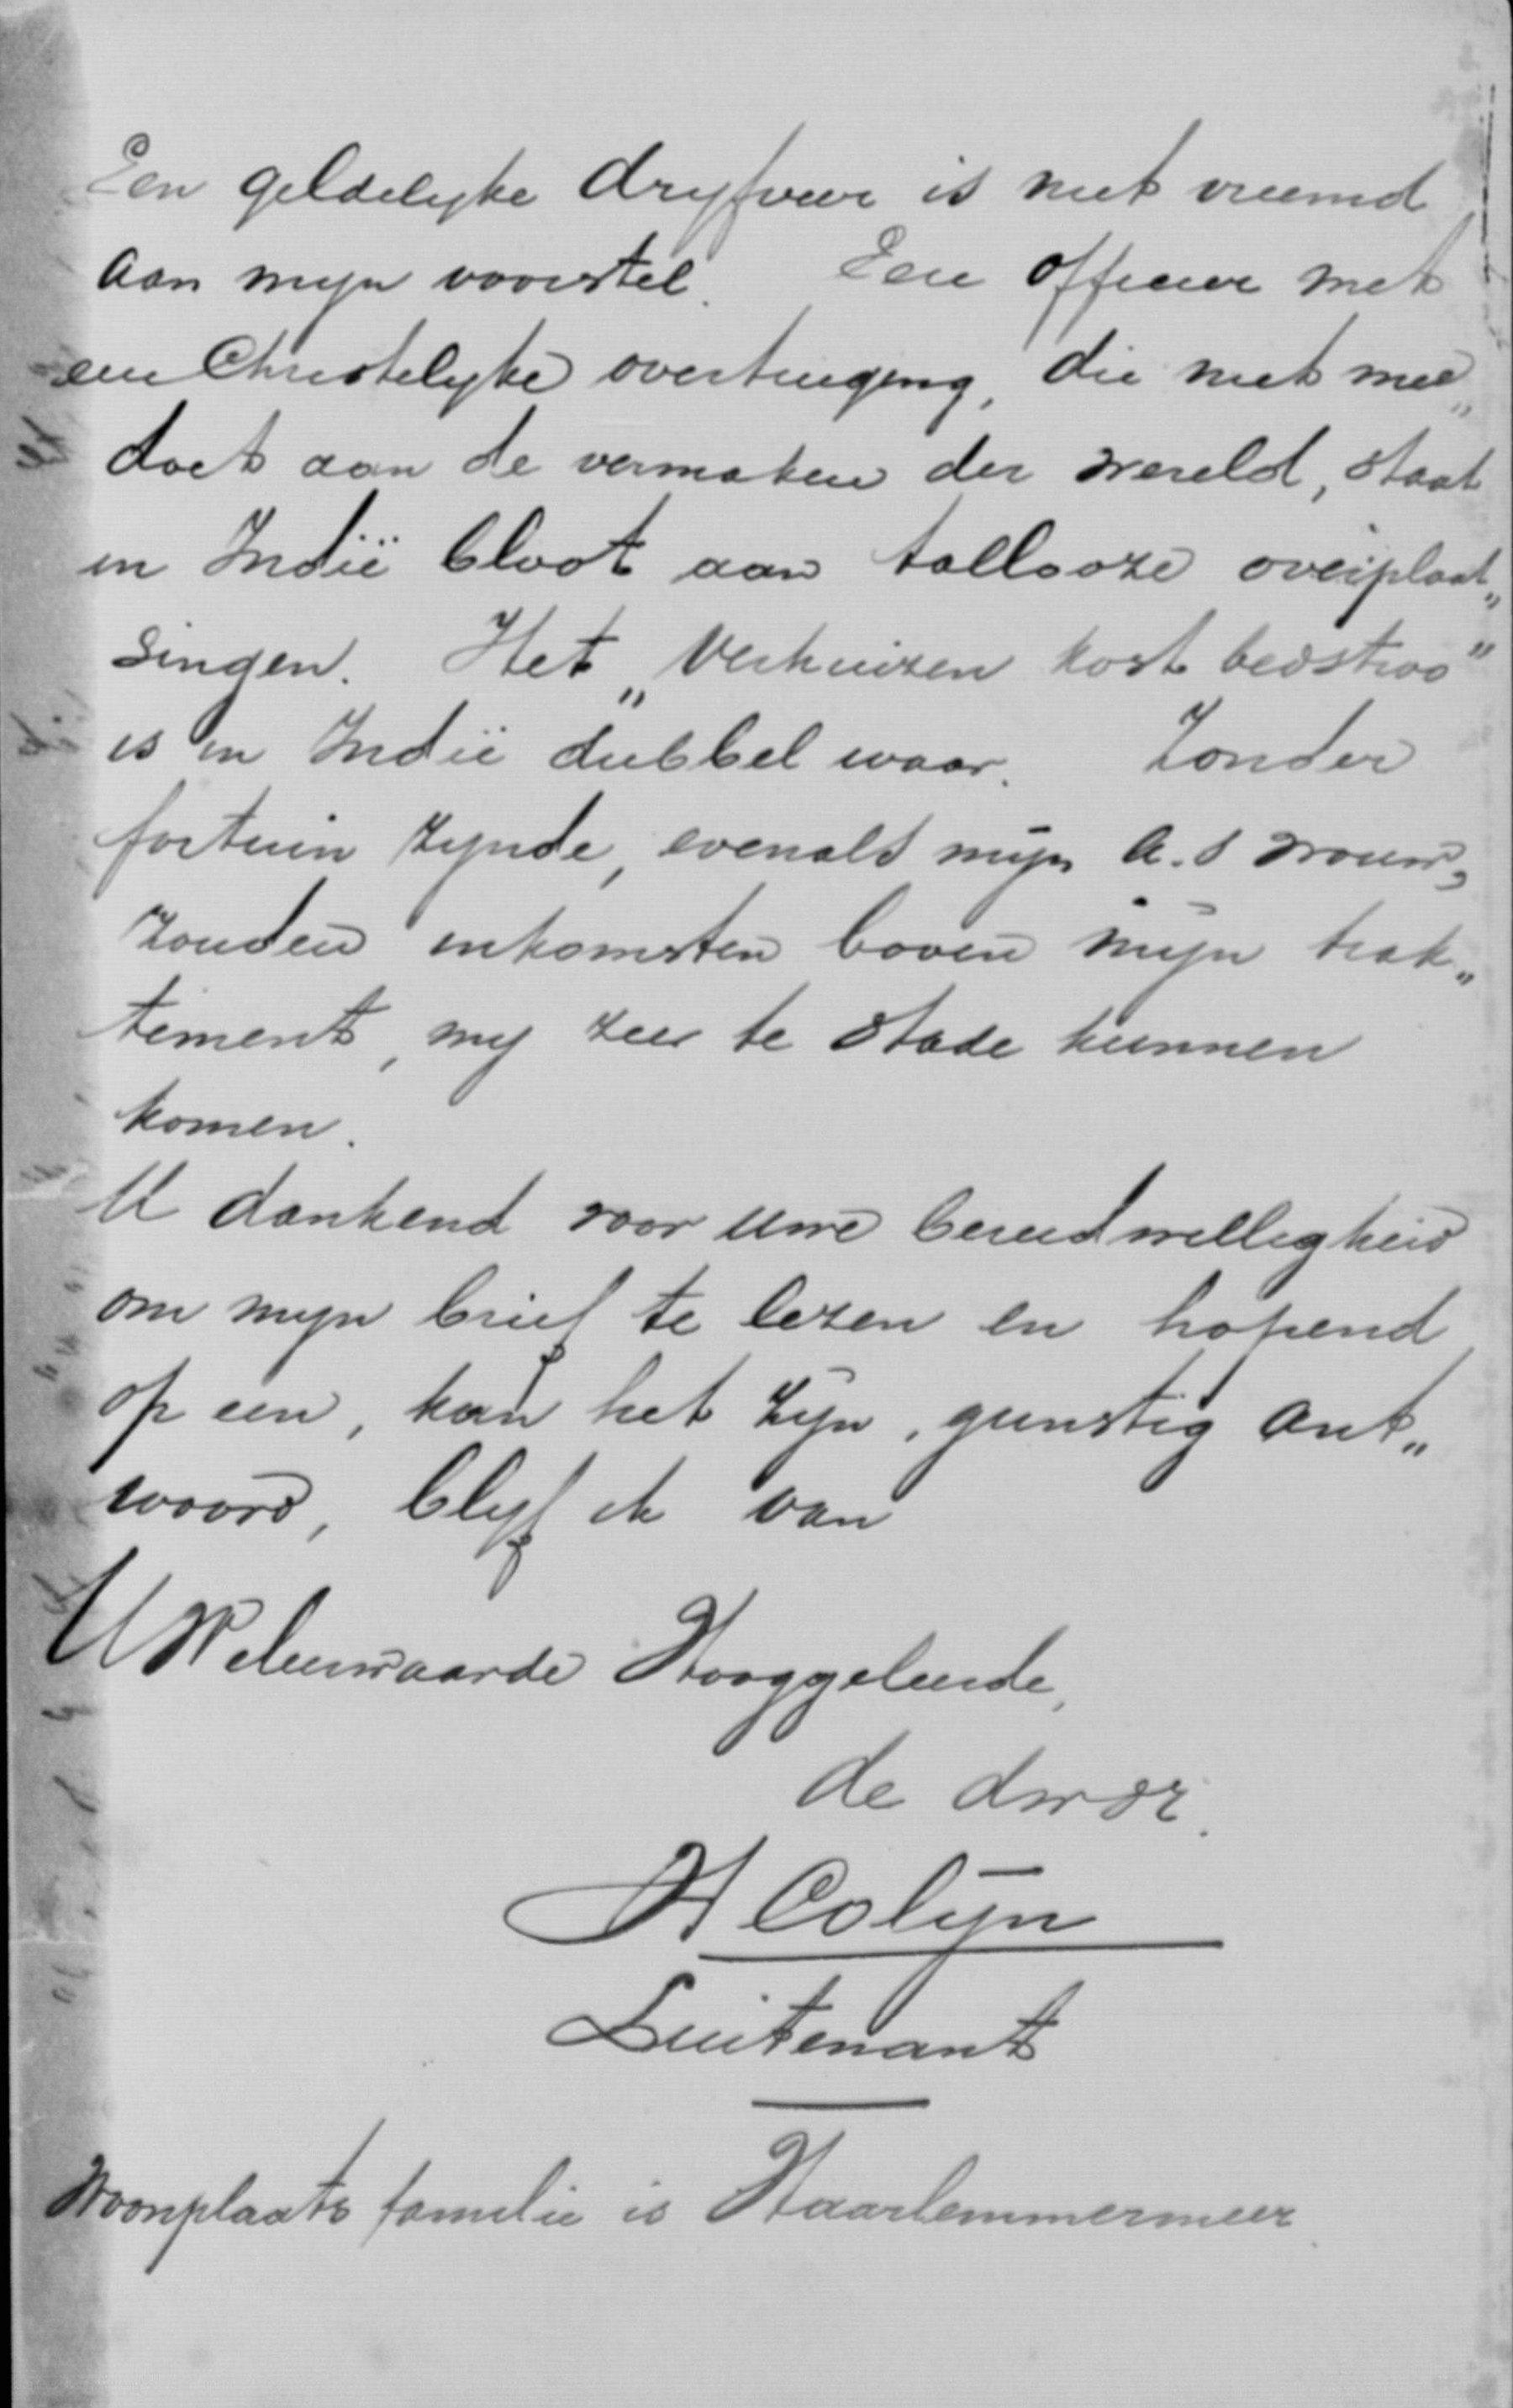 Een geldelyke dryfveer is niet vreemd
aan mijn voorstel. Een officier met
een Christelyke overtuiging, die niet mee„
doet aan de vermaken der wereld, staat
in Indië bloot aan tallooze overplaat„
singen. Het „Verhuizen kost bedstroo"
is in Indië dubbel waar. Zonder
fortuin zynde, evenals mijn a.s vrouw,
zouden inkomsten boven mijn trak„
tement, my zeer te stade kunnen
komen.
U dankend voor uwe bereidwilligheid
om mijn brief te lezen en hopend
op een, kan het zijn, gunstig ant„
woord, blyf ik van
UWeleerwaarde Hooggeleerde,
de dwdr.
H Colijn
Luitenant
Woonplaats familie is Haarlemmermeer.